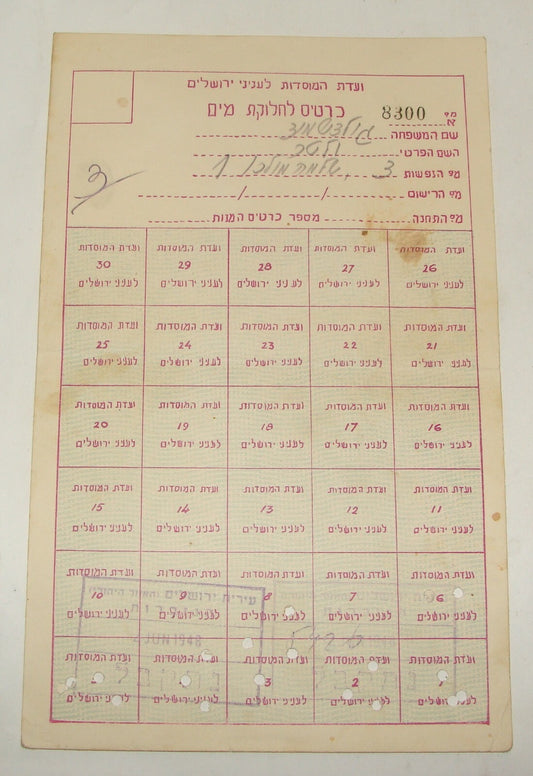 ועדת המוסדות לעניני ירושלים
כרטיס לחלוקת מים
מס' 8300
א
שם המשפחה
השם הפרטי
מס' הנפשות 3
מס' הרישום / / /
מס' התחנה מספר כרטיס המנות
3
ועדת המוסדות ועדת המוסדות ועדת המוסדות ועדת המוסדות ועדת המוסדות
26 27 28 29 30
לעניני ירושלים לעניני ירושלים לעניני ירושלים לעניני ירושלים לעניני ירושלים
ועדת המוסדות ועדת המוסדות ועדת המוסדות ועדת המוסדות ועדת המוסדות
21 22 23 24 25
לעניני ירושלים לעניני ירושלים לעניני ירושלים לעניני ירושלים לעניני ירושלים
ועדת המוסדות ועדת המוסדות ועדת המוסדות ועדת המוסדות ועדת המוסדות
16 17 18 19 20
לעניני ירושלים לעניני ירושלים לעניני ירושלים לעניני ירושלים לעניני ירושלים
ועדת המוסדות ועדת המוסדות ועדת המוסדות ועדת המוסדות ועדת המוסדות
11 12 13 14 15
לעניני ירושלים לעניני ירושלים לעניני ירושלים לעניני ירושלים לעניני ירושלים
ועדת המוסדות ועדת המוסדות ועדת המוסדות ועדת המוסדות ועדת המוסדות
6 7 8 9 10
עירית ירושלים
לעניני ירושלים לעניני ירושלים לעניני ירושלים לעניני ירושלים לעניני ירושלים
JUN 1948
ועדת המוסדות ועדת המוסדות ועדת המוסדות ועדת המוסדות ועדת המוסדות
2 3
נתקבל
לעניני ירושלים לעניני ירושלים לעניני ירושלים לעניני ירושלים לעניני ירושלים